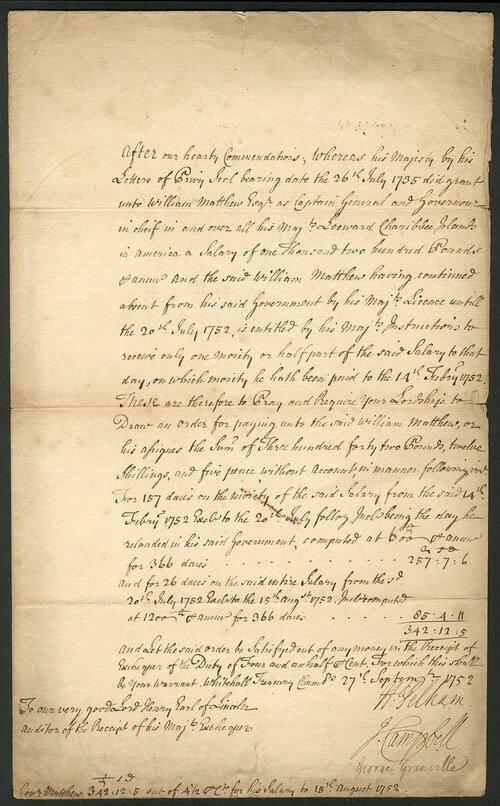 After our hearty Commendations; Whereas his Majesty by his
Letters of Privy Seal bearing date the 26th July 1735 did grant
unto William Matthew Esqr. as Captain General and Governour
in cheif in and over all his Majts. Leeward Charibbee Islands
in america a Salary of one Thousand two hundred Pounds
P annu and the said William Matthew having continued
absent from his said Government by his Majts. Licence untill
the 20th. July 1752, is entitled by his Majts. Instructions to
receive only one Moiety or half part of the said Salary to that
day, on which moiety he hath been paid to the 14th. Febry. 1752.
These are therefore to Pray and Require Your Lordship to
Draw an order for paying unto the said William Matthew, or
his assignes the Sum of Three hundred forty two Pounds, twelve
Shillings, and five pence without Account, in manner following vizt
For 157 daies on the moiety of the said Salary from the said 14th.
Febry. 1752 Exclve to the 20th. July follog. Inclve being the day he
relanded in his said Government, computed at 600 P annu
for 366 daies . . . . . . . . . . . . 257:7:6
And for 26 daies on the said entire Salary from the sd.
20th. July 1752 Exclve to the 15th augst. 1752. Inclve computed
at 1200 P annu for 366 daies . . . . . 85:4:11
342:12:5
And Let the said order be Satisfyed out of any money in the Receipt of
Exchequer of the Duty of Four and an half P Cent. For which this shall
be Your Warrant. Whitehall Treasury Chambrs. 27th. Septemr. 1752
To our very good Lord Henry Earl of Lincoln
Auditor of the Receipt of his Majts. Exchequer
H Pelham
J Campbell
George Grenville
Govr. Matthew 342:12:5 out of 4 1/2 P Ct. for his Salary to 15th August 1752.